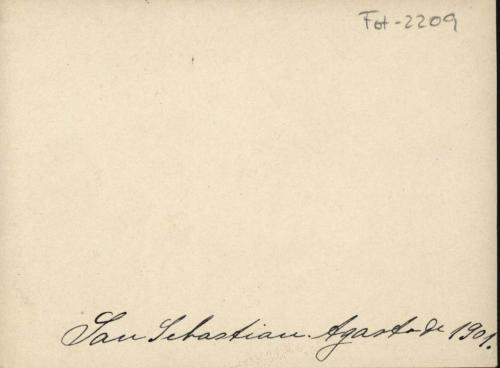 Fot-2209
San Sebastian. Agosto de 1901.